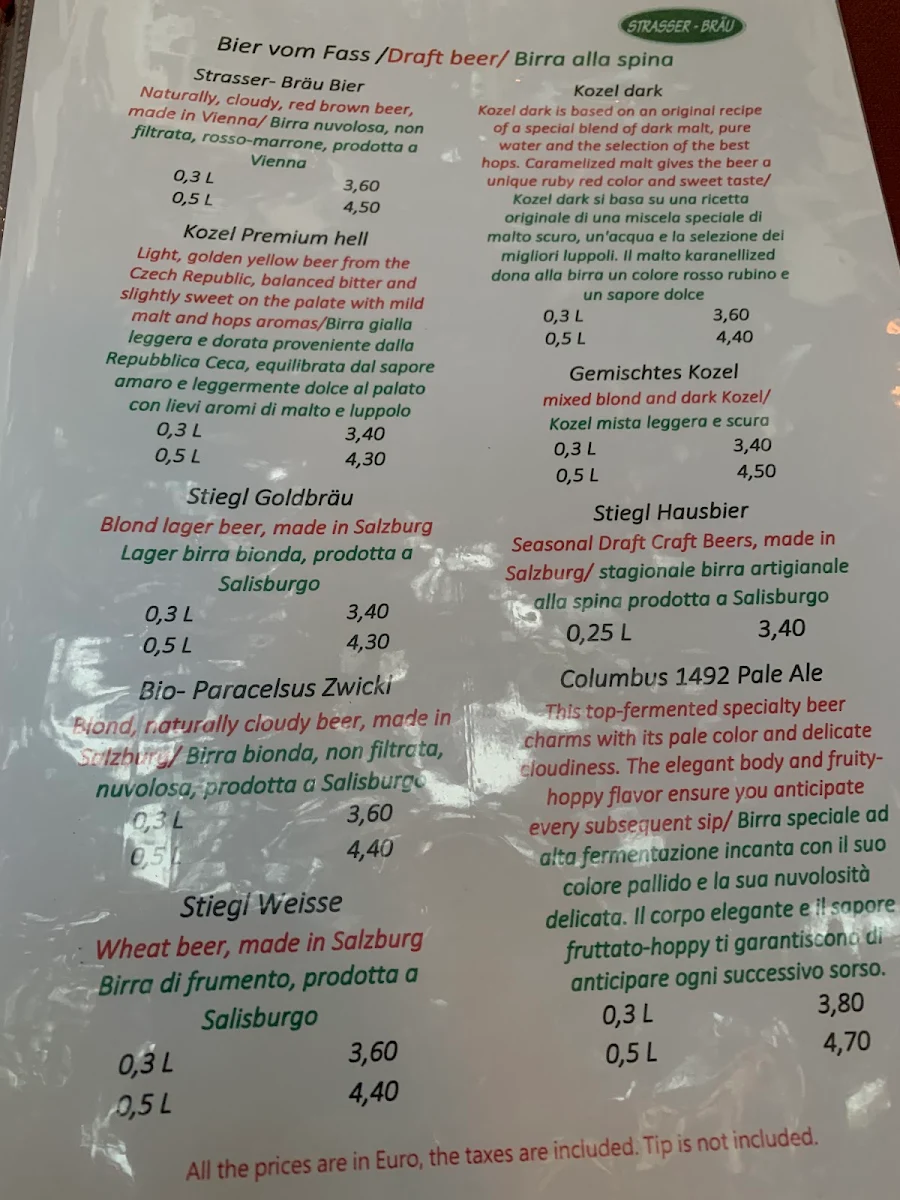 STRASSER - BRÄU
Bier vom Fass /Draft beer/ Birra alla spina
Strasser- Bräu Bier
Naturally, cloudy, red brown beer,
made in Vienna/ Birra nuvolosa, non
filtrata, rosso-marrone, prodotta a
Vienna
0,3 L 3,60
0,5 L 4,50
Kozel Premium hell
Light, golden yellow beer from the
Czech Republic, balanced bitter and
slightly sweet on the palate with mild
malt and hops aromas/Birra gialla
leggera e dorata proveniente dalla
Repubblica Ceca, equilibrata dal sapore
amaro e leggermente dolce al palato
con lievi aromi di malto e luppolo
0,3 L 3,40
0,5 L 4,30
Stiegl Goldbräu
Blond lager beer, made in Salzburg
Lager birra bionda, prodotta a
Salisburgo
0,3 L 3,40
0,5 L 4,30
Bio- Paracelsus Zwickl
Blond, naturally cloudy beer, made in
Salzburg/ Birra bionda, non filtrata,
nuvolosa, prodotta a Salisburgo
0,3 L 3,60
0,5 L 4,40
Stiegl Weisse
Wheat beer, made in Salzburg
Birra di frumento, prodotta a
Salisburgo
0,3 L 3,60
0,5 L 4,40
Kozel dark
Kozel dark is based on an original recipe
of a special blend of dark malt, pure
water and the selection of the best
hops. Caramelized malt gives the beer a
unique ruby red color and sweet taste/
Kozel dark si basa su una ricetta
originale di una miscela speciale di
malto scuro, un'acqua e la selezione dei
migliori luppoli. Il malto karanellized
dona alla birra un colore rosso rubino e
un sapore dolce
0,3 L 3,60
0,5 L 4,40
Gemischtes Kozel
mixed blond and dark Kozel/
Kozel mista leggera e scura
0,3 L 3,40
0,5 L 4,50
Stiegl Hausbier
Seasonal Draft Craft Beers, made in
Salzburg/ stagionale birra artigianale
alla spina prodotta a Salisburgo
0,25 L 3,40
Columbus 1492 Pale Ale
This top-fermented specialty beer
charms with its pale color and delicate
cloudiness. The elegant body and fruity-
hoppy flavor ensure you anticipate
every subsequent sip/ Birra speciale ad
alta fermentazione incanta con il suo
colore pallido e la sua nuvolosità
delicata. Il corpo elegante e il sapore
fruttato-hoppy ti garantiscono di
anticipare ogni successivo sorso.
0,3 L 3,80
0,5 L 4,70
All the prices are in Euro, the taxes are included. Tip is not included.